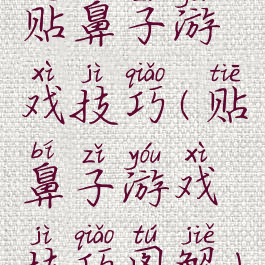 贴鼻子游
xì jì qiǎo tiē
戏技巧(贴
bí zǐ yóu xì
鼻子游戏
jì qiǎo tú jiě
技巧图解)